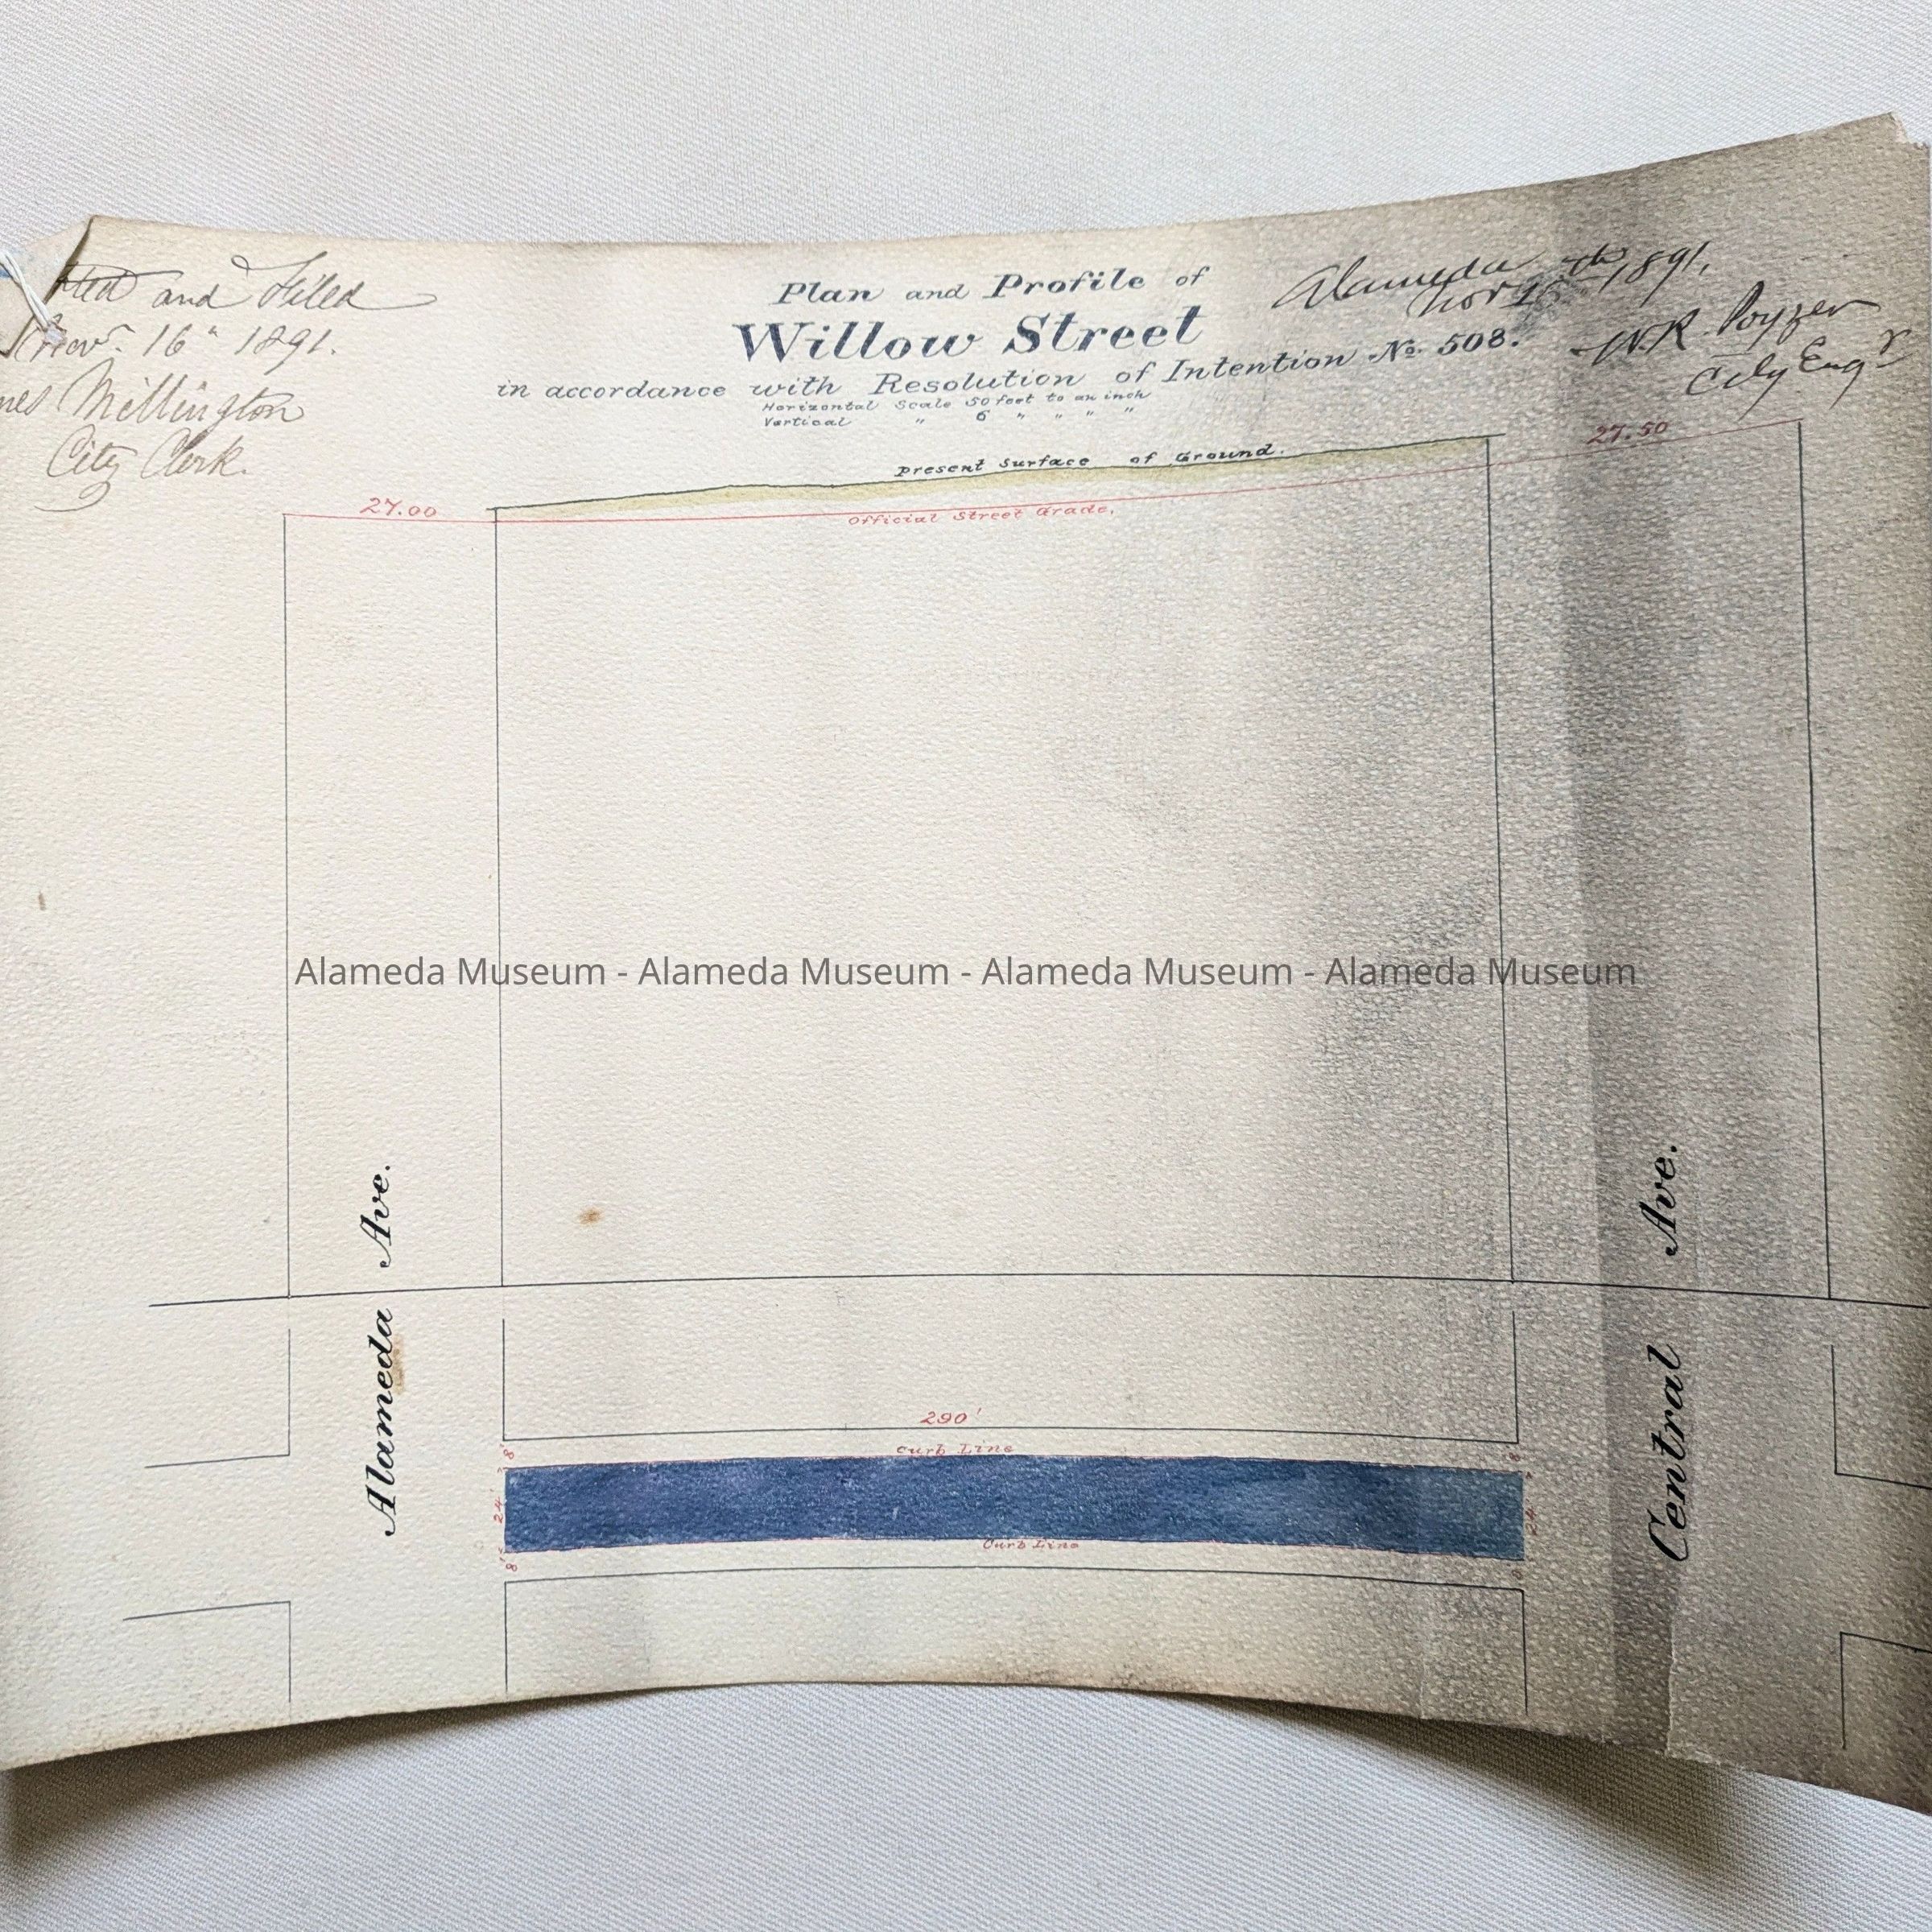 and Filed
Nov. 16" 1891.
Millington
City Clerk.
Plan and Profile of
Willow Street
in accordance with Resolution of Intention No. 508.
Horizontal Scale 50 feet to an inch
Vertical " 6 " " " "
Alameda
Nov 1891.
W.R. Poyzer
City Engr
present Surface of Ground.
27.00
27.50
Official Street Grade.
Alameda Museum - Alameda Museum - Alameda Museum - Alameda Museum
Alameda Ave.
Central Ave.
290'
Curb Line
8'
8'
24'
24'
Curb Line
8'